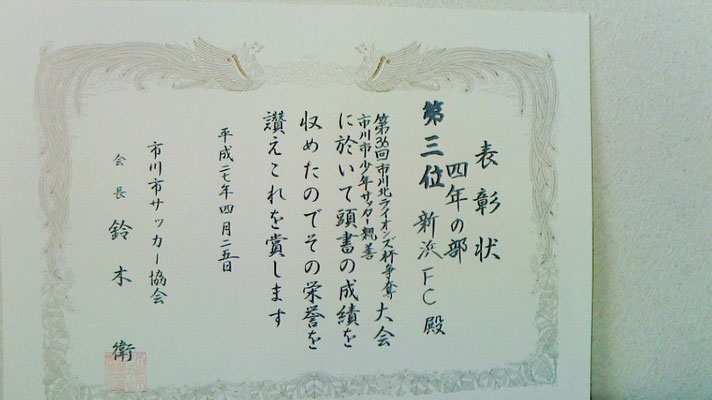 表彰状
四年の部
第三位 新浜FC殿
第36回市川北ライオンズ杯争奪
市川市少年サッカー親善
大会
に於いて頭書の成績を
収めたのでその栄誉を
讃えこれを賞します
平成二七年四月二五日
市川市サッカー協会
会長 鈴木 衛